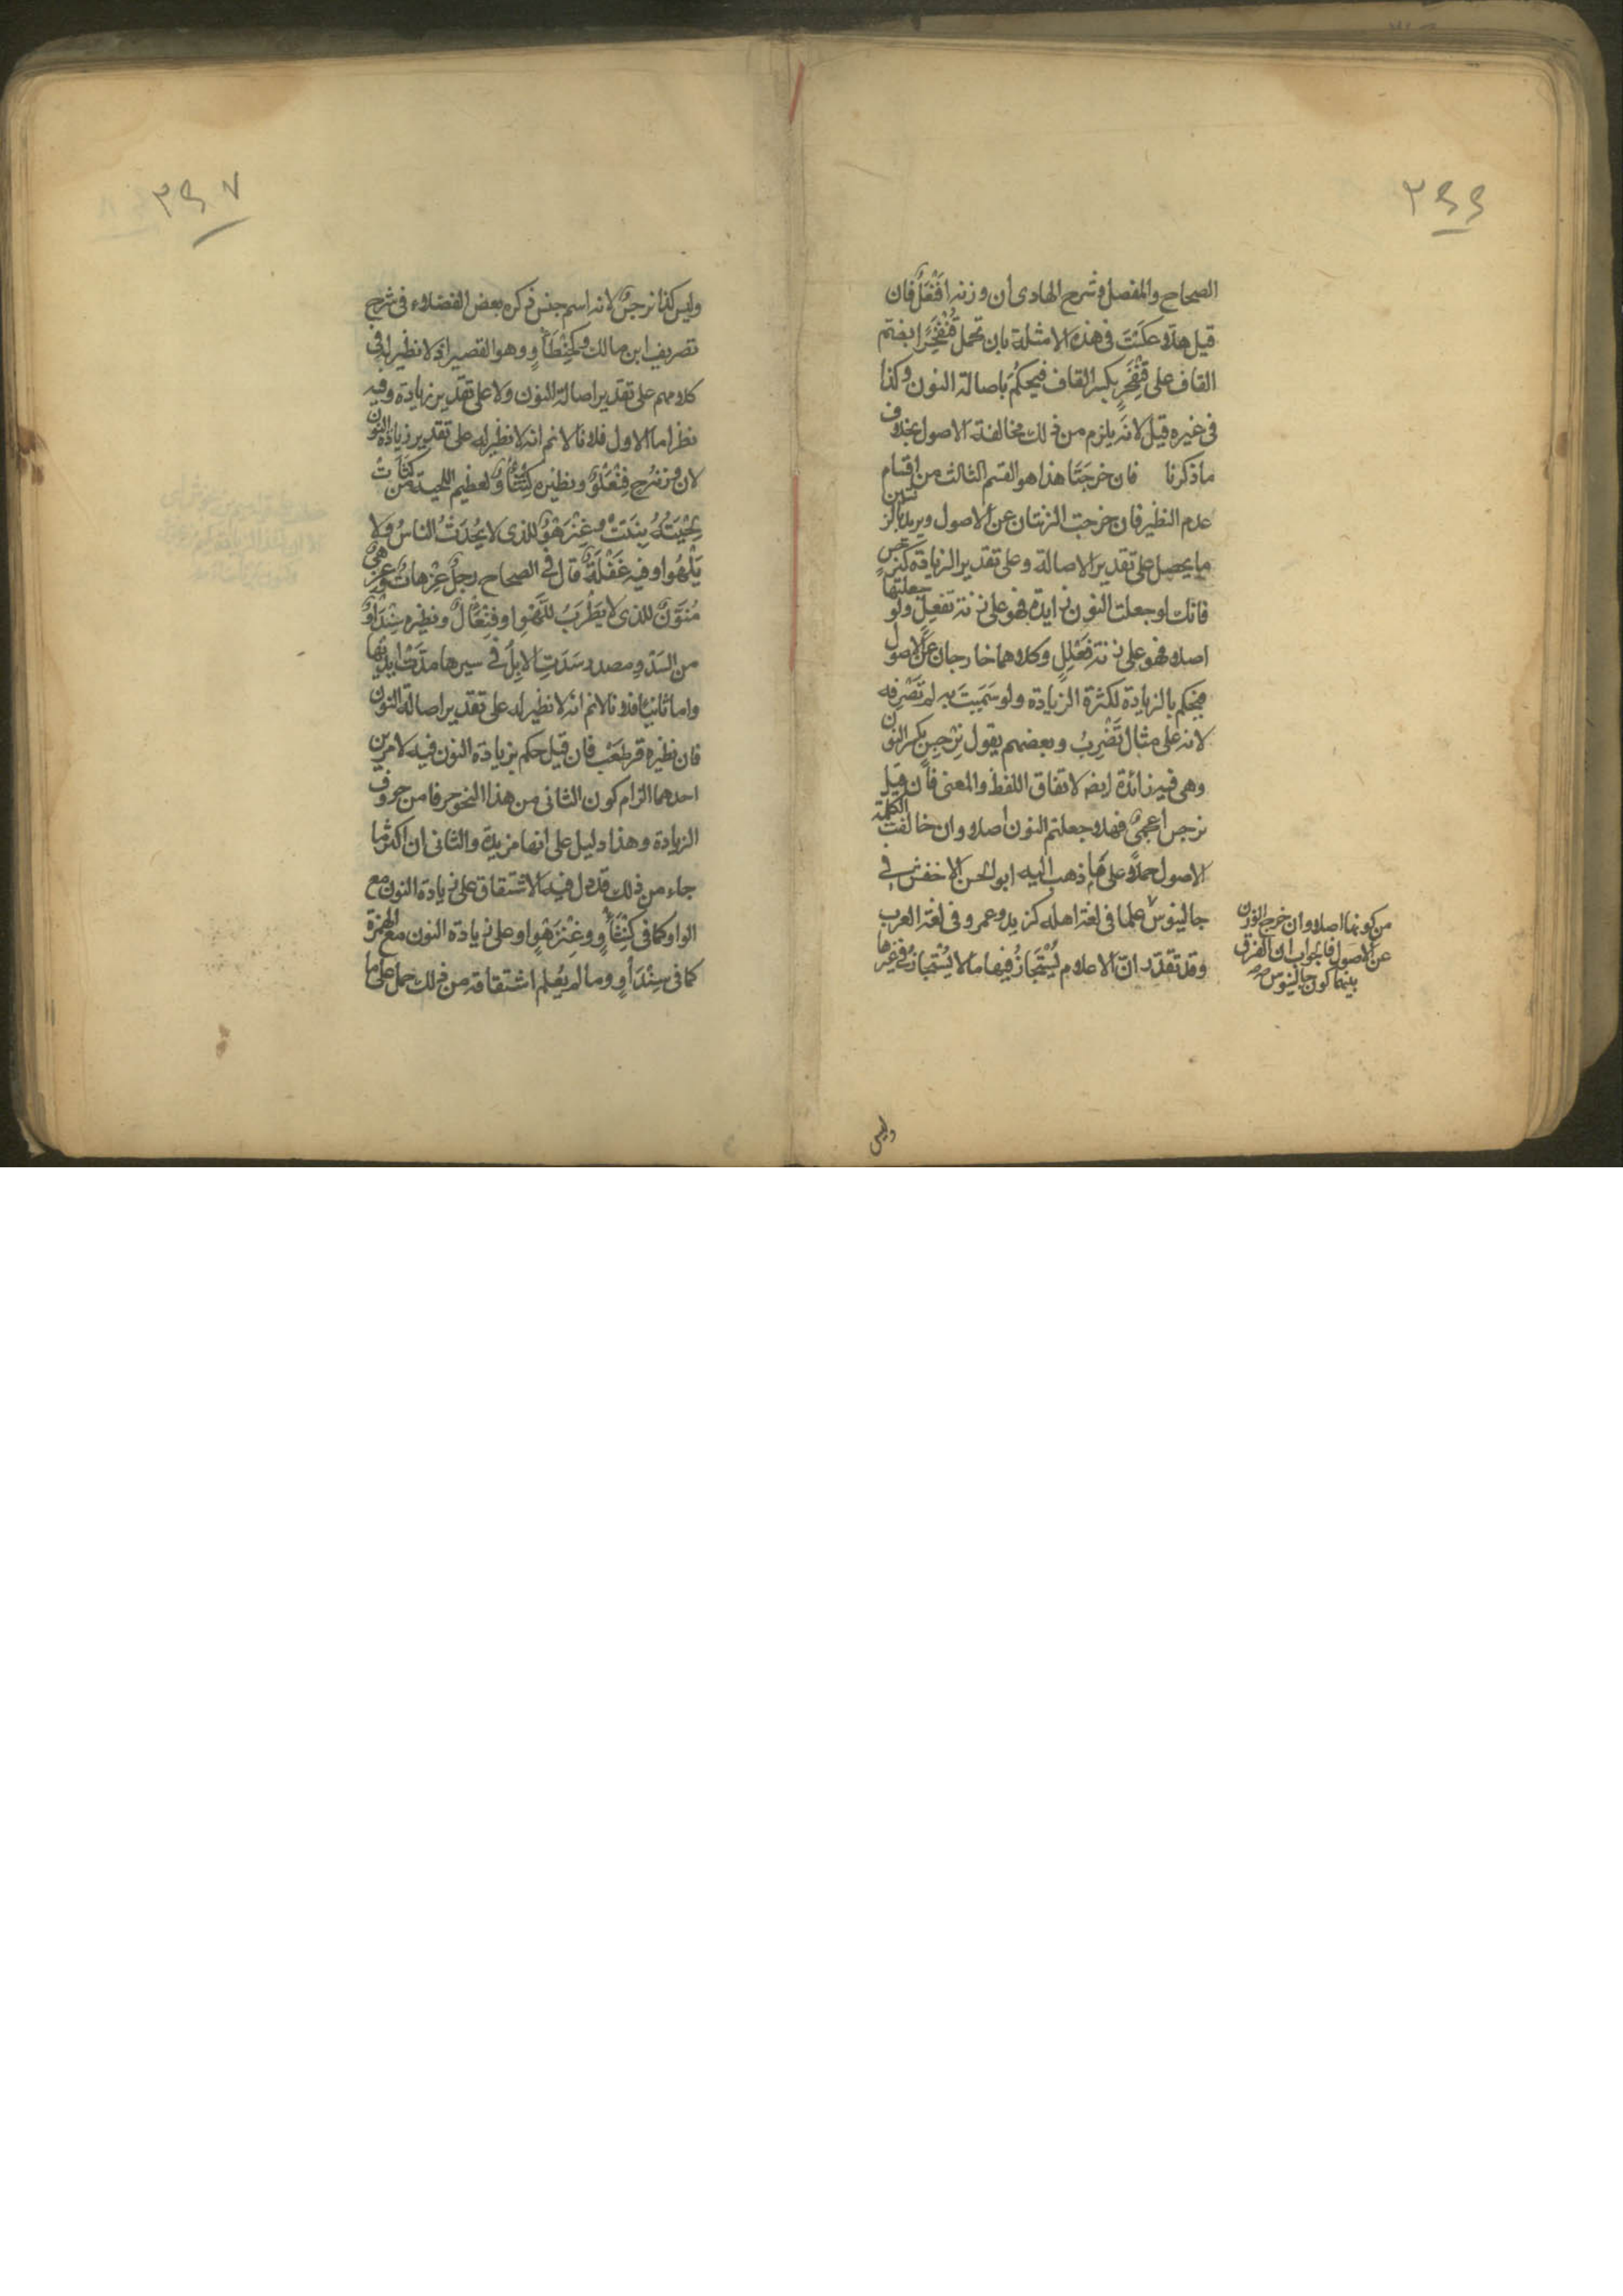 ٣٤٦
الصحاح والمفصل وشرح الهادى ان وزنه افنعل فان
قيل هلا عكست فى هذه الامثلة بان تحمل قُنْفَخْرًا بضم
القاف على قِنْفَخْرٍ بكسر القاف فيحكم باصالة النون وكذا
فى غيره قيل لانه يلزم من ذلك مخالفة الاصول بخلاف
ما ذكرنا فان خرجتا هذا هو القسم الثالث من اقسام
عدم النظير فان خرجت الزنتان عن الاصول ويريد بالزنتين
ما يحصل على تقدير الاصالة وعلى تقدير الزيادة كنرجس
فانك لو جعلت النون زايدة فهو على زنة نَفْعِلٍ ولو جعلتها
اصلا فهو على زنة فَعْلِلٍ وكلاهما خارجان عن الاصول
فيحكم بالزيادة لكثرة الزيادة ولو سَمّيتَ به لم تَصْرِفه
لانه على مثال نَضْرِبُ وبعضهم يقول نِرْجِس بكسر النون
وهى فيه زائدة ايضه لاتفاق اللفظ والمعنى فان قيل
نرجس اعجمىّ فهلا جعلتم النون اصلا وان خالفت الكلمة
الاصول حملا على ما ذهب اليه ابو الحسن الاخفش فى
جالينوس علما فى لغة اهله كزيد وعمرو فى لغة العرب
وقد تقدّر انّ الاعلام يُسْتَجَازُ فيها ما لا يُسْتَجاز فى غيرها
من كونها اصلا وان خرج الوزن
عن الاصول فالجواب ان الفرق
بينهما كون جالينوس صح
وليس
٣٤٧
وليس كذا نرجسٌ لانه اسم جنس ذكره بعض الفضلاء فى شرح
تصريف ابن مالك وكحِنْطَأْوٍ وهو القصير اذ لا نظير له فى
كلامهم على تقدير اصالة النون ولا على تقدير زيادة وفيه
نظر اما الاول فلانا لانم انه لا نظير له على تقدير زيادة النون
لان وزنه ح فِنْعَلْوٌ ونظيره كِنْثَأْوٌ لعظيم اللحية من كَثَأَتْ
لِحْيَتُهُ نبتت وعِنْزَهْوٌ للذى لا يُحَدّثُ الناسُ ولا
يَلْهُوا وفيه غَفْلَةٌ قال فى الصحاح رجلٌ عِزْهاةٌ وعِزْهىً
مُنَوَّنٌ للذى لا يَطْرَبُ للّهْوِ او فِنْعَالٌ ونظيره سِنْدَاوٌ
من السَدْوِ مصدر سَدَتِ الابلُ فى سيرها مدّت ايديها
واما ثانيا فلانا لانم انه لا نظير له على تقدير اصالة النون
فان نظيره قرطعب فان قيل حكم بزيادة النون فيه لامرين
احدهما التزام كون الثانى من هذا النحو حرفا من حروف
الزيادة وهذا دليل على انها مزيدة والثانى ان اكثر ما
جاء من ذلك قد دل فيه الاشتقاق على زيادة النون مع
الواو كما فى كِنْثَأْوٍ وعِنْزَهْوٍ او على زيادة النون مع الهمزة
كما فى سِنْدَأْوٍ وما لم يُعلم اشتقاقه من ذلك حمل على ما